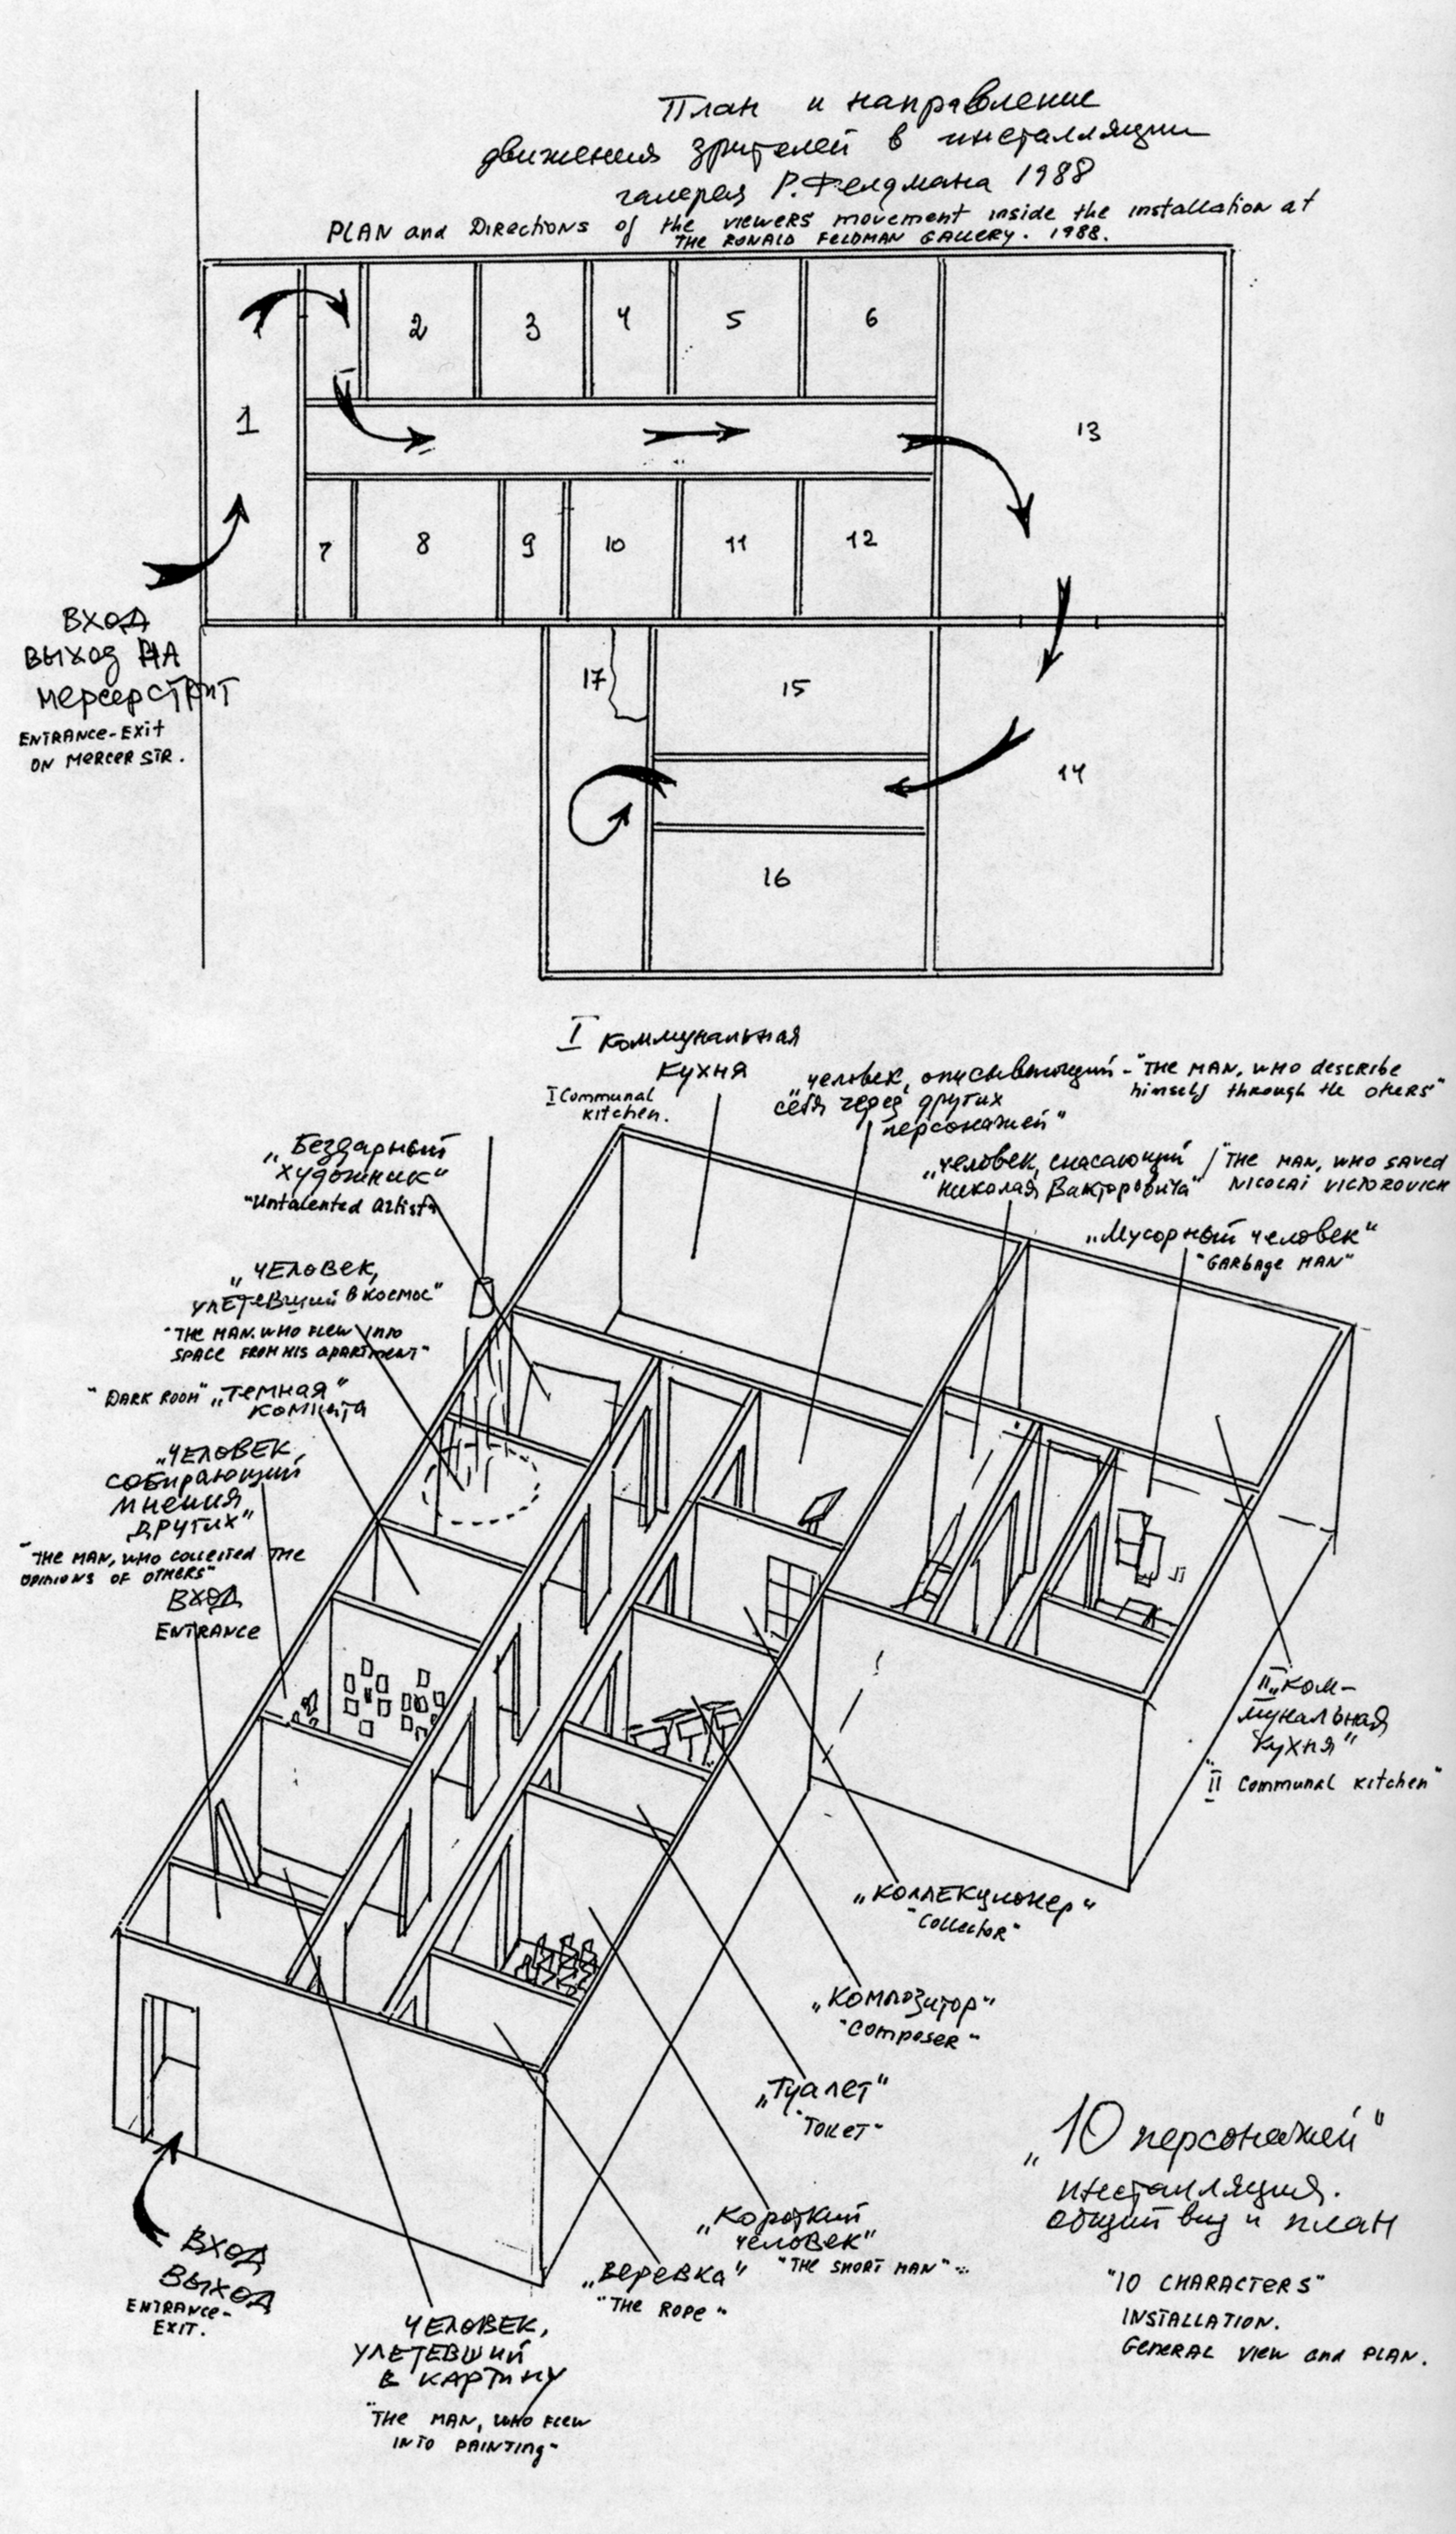 План и направление
движения зрителей в инсталляции
галерея Р. Фелдмана 1988
PLAN and DiRections of the VIEWERS movement inside the installation at
THE RONALD FELDMAN GALLERY. 1988.
1
2
3
4
5
6
7
8
9
10
11
12
13
14
15
16
17
ВХОД
ВЫХОД НА
МЕРСЕР СТРИТ
ENTRANCE-EXIT
ON MERCER STR.
I Коммунальная
Кухня
I Communal
kitchen.
„человек, описывающий
себя через других
персонажей"
"THE MAN, WHO describe
himself through the others"
„Бездарный
художник"
"Untalented Artist"
„человек, спасающий
Николая Викторовича"
"THE MAN, WHO SAVED
NICOLAI VICTOROVICH
„Мусорный человек"
"GARbage MAN"
„ЧЕЛОВЕК,
УЛЕТЕВШИЙ В КОСМОС"
"THE MAN. WHO FLEW INTO
SPACE FROM HIS APARTMENT"
"DARK ROOM" „ТЕМНАЯ"
КОМНАТА
„ЧЕЛОВЕК,
СОБИРАЮЩИЙ
МНЕНИЯ
ДРУГИХ"
"THE MAN, WHO COLLECTED THE
OPINIONS OF OTHERS"
ВХОД
ENTRANCE
II „КОМ-
МУНАЛЬНАЯ
КУХНЯ"
"II Communal kitchen"
„КОЛЛЕКЦИОНЕР"
"Collector"
„КОМПОЗИТОР"
"COMPOSER"
„Туалет"
"TOILET"
„Короткий
человек"
"THE SHORT MAN"
„Веревка"
"THE ROPE"
ВХОД
ВЫХОД
ENTRANCE-
EXIT.
ЧЕЛОВЕК,
УЛЕТЕВШИЙ
В КАРТИНУ
"THE MAN, WHO FLEW
INTO PAINTING"
„10 персонажей"
инсталляция.
общий вид и план
"10 CHARACTERS"
INSTALLATION.
GENERAL VIEW and PLAN.